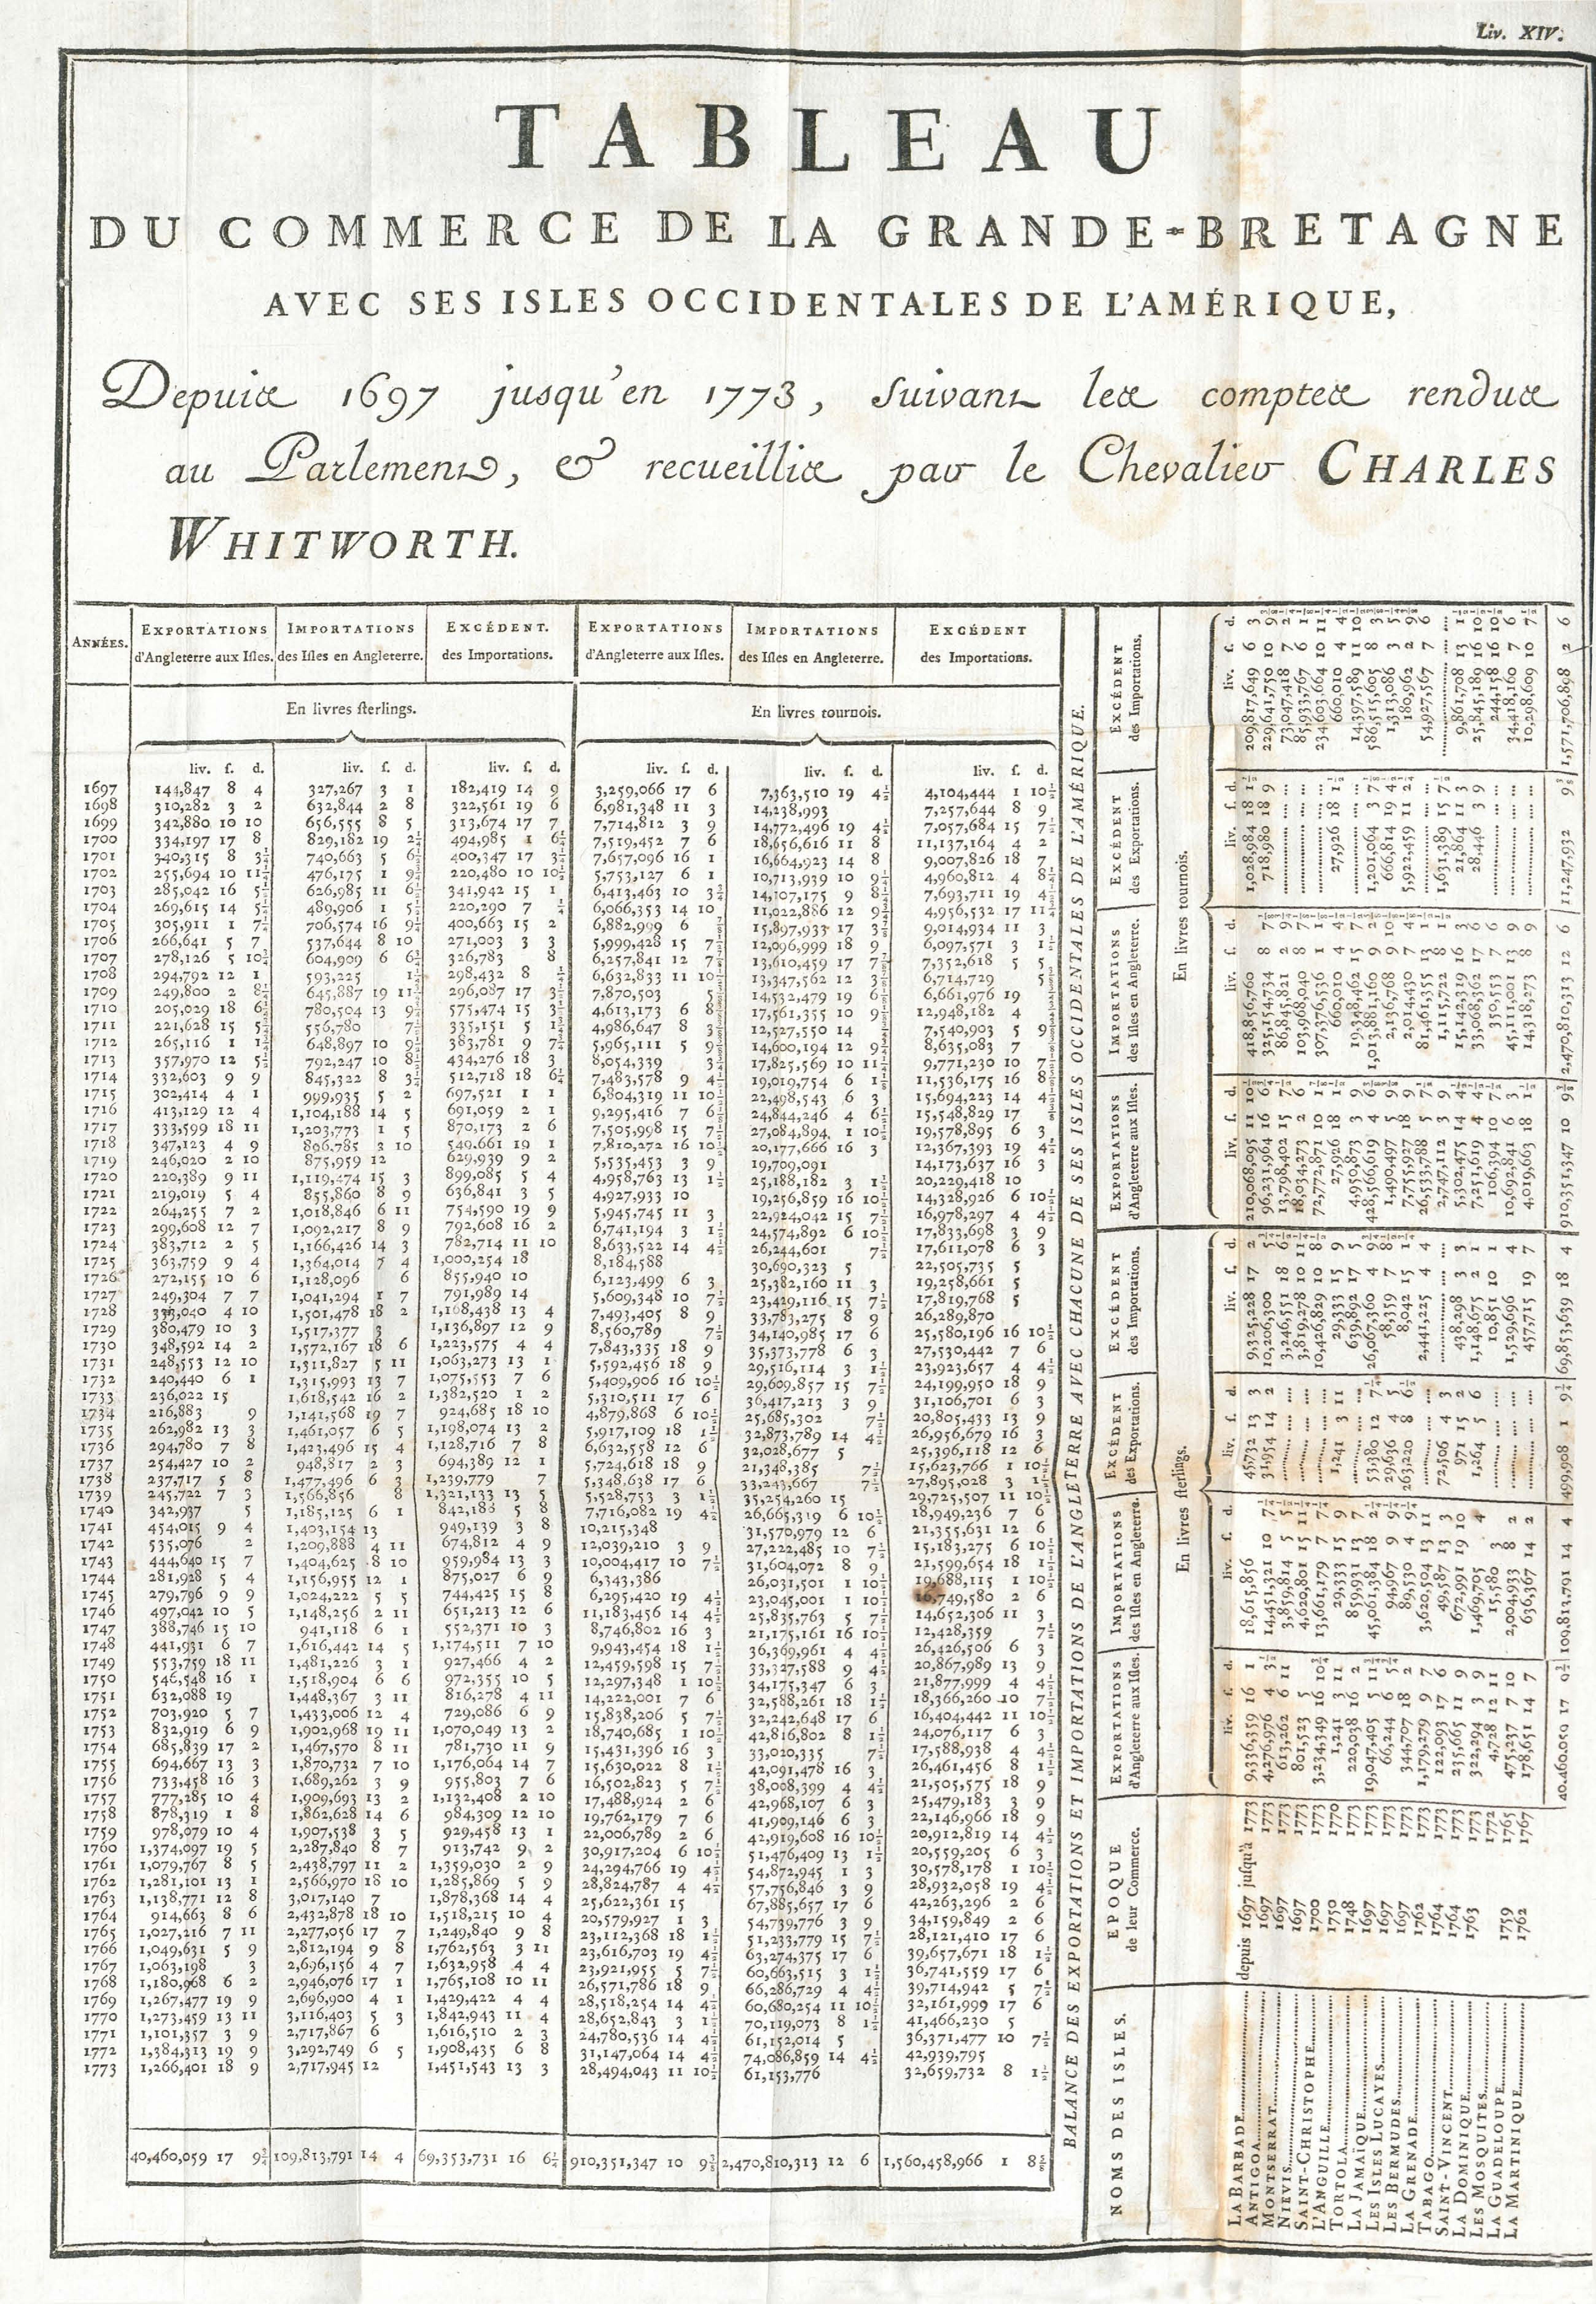 Liv. XIV.
TABLEAU
DU COMMERCE DE LA GRANDE-BRETAGNE
AVEC SES ISLES OCCIDENTALES DE L'AMÉRIQUE,
Depuis 1697 jusqu'en 1773, suivant les comptes rendus
au Parlement, & recueillis par le Chevalier CHARLES
WHITWORTH.
ANNÉES. EXPORTATIONS d'Angleterre aux Isles. IMPORTATIONS des Isles en Angleterre. EXCÉDENT. des Importations. EXPORTATIONS d'Angleterre aux Isles. IMPORTATIONS des Isles en Angleterre. EXCÉDENT des Importations.
En livres sterlings. En livres tournois.
liv. s. d. liv. s. d. liv. s. d. liv. s. d. liv. s. d. liv. s. d.
1697 144,847 8 4 327,267 3 1 182,419 14 9 3,259,066 17 6 7,363,510 19 4½ 4,104,444 1 10½
1698 310,282 3 2 632,844 2 8 322,561 19 6 6,981,348 11 3 14,238,993 7,257,644 8 9
1699 342,880 10 10 656,555 8 5 313,674 17 7 7,714,812 3 9 14,772,496 19 4½ 7,057,684 15 7½
1700 334,197 17 8 829,182 19 2¼ 494,985 1 6¼ 7,519,452 7 6 18,656,616 11 8 11,137,164 4 2
1701 340,315 8 3¼ 740,663 5 6½ 400,347 17 3¼ 7,657,096 16 1 16,664,923 14 8 9,007,826 18 7
1702 255,694 10 11¼ 476,175 1 9¾ 220,480 10 10½ 5,753,127 6 1 10,713,939 10 9 4,960,812 4 8
1703 285,042 16 5½ 626,985 11 6 341,942 15 1 6,413,463 10 3¾ 14,107,175 9 8 7,693,711 19 4
1704 269,615 14 5 489,906 1 5 220,290 7 ¼ 6,066,353 14 10 11,022,886 12 9 4,956,532 17 11
1705 305,911 1 7 706,574 16 9 400,663 15 2 6,882,999 6 15,897,933 17 3 9,014,934 11 3
1706 266,641 5 7 537,644 8 10 271,003 3 3 5,999,428 15 7½ 12,096,999 18 9 6,097,571 3 1½
1707 278,126 5 10 604,909 6 6 326,783 8 6,257,841 12 7 13,610,459 17 7 7,352,618 5 5
1708 294,792 12 1 593,225 1 298,432 8 ¼ 6,632,833 11 10 13,347,562 12 3 6,714,729 5
1709 249,800 2 8 645,887 19 11 296,087 17 3 7,870,503 5 14,532,479 19 6 6,661,976 19
1710 205,029 18 6 780,504 13 9 575,474 15 3 4,613,173 6 8 17,561,355 10 9 12,948,182 4
1711 221,628 15 5 556,780 7 335,151 5 1 4,986,647 8 3 12,527,550 14 7,540,903 5 9
1712 265,116 1 1 648,897 10 9 383,781 9 7 5,965,111 5 9 14,600,194 12 9 8,635,083 7
1713 357,970 12 5 792,247 10 8 434,276 18 3 8,054,339 3 17,825,569 10 11 9,771,230 10 7
1714 332,603 9 9 845,322 8 3 512,718 18 6 7,483,578 9 4 19,019,754 6 1 11,536,175 16 8
1715 302,414 4 1 999,935 5 2 697,521 1 1 6,804,319 11 10½ 22,498,543 6 3 15,694,223 14 4½
1716 413,129 12 4 1,104,188 14 5 691,059 2 1 9,295,416 7 6 24,844,246 4 6 15,548,829 17
1717 333,599 18 11 1,203,773 1 5 870,173 2 6 7,505,998 15 7½ 27,084,894 1 10½ 19,578,895 6 3
1718 347,123 4 9 896,785 3 10 549,661 19 1 7,810,272 16 10½ 20,177,666 16 3 12,367,393 19 4½
1719 246,020 2 10 875,959 12 629,939 9 2 5,535,453 3 9 19,709,091 14,173,637 16 3
1720 220,389 9 11 1,119,474 15 3 899,085 5 4 4,958,763 13 1½ 25,188,182 3 1½ 20,229,418 10
1721 219,019 5 4 855,860 8 9 636,841 3 5 4,927,933 10 19,256,859 16 10½ 14,328,926 6 10½
1722 264,255 7 2 1,018,846 6 11 754,590 19 9 5,945,745 11 3 22,924,042 15 7½ 16,978,297 4 4½
1723 299,608 12 7 1,092,217 8 9 792,608 16 2 6,741,194 3 1½ 24,574,892 6 10½ 17,833,698 3 9
1724 383,712 2 5 1,166,426 14 3 782,714 11 10 8,633,522 14 4½ 26,244,601 7½ 17,611,078 6 3
1725 363,759 9 4 1,364,014 7 4 1,000,254 18 8,184,588 30,690,323 5 22,505,735 5
1726 272,155 10 6 1,128,096 6 855,940 10 6,123,499 6 3 25,382,160 11 3 19,258,661 5
1727 249,304 7 7 1,041,294 1 7 791,989 14 5,609,348 10 7½ 23,429,116 15 7½ 17,819,768 5
1728 333,040 4 10 1,501,478 18 2 1,168,438 13 4 7,493,405 8 9 33,783,275 8 9 26,289,870
1729 380,479 10 3 1,517,377 3 1,136,897 12 9 8,560,789 7½ 34,140,985 17 6 25,580,196 16 10½
1730 348,592 14 2 1,572,167 18 6 1,223,575 4 4 7,843,335 18 9 35,373,778 6 3 27,530,442 7 6
1731 248,553 12 10 1,311,827 5 11 1,063,273 13 1 5,592,456 18 9 29,516,114 3 1½ 23,923,657 4 4½
1732 240,440 6 1 1,315,993 13 7 1,075,553 7 6 5,409,906 16 10½ 29,609,857 15 7½ 24,199,950 18 9
1733 236,022 15 1,618,542 16 2 1,382,520 1 2 5,310,511 17 6 36,417,213 3 9 31,106,701 6 3
1734 216,883 9 1,141,568 19 7 924,685 18 10 4,879,868 6 10½ 25,685,302 7½ 20,805,433 13 9
1735 262,982 13 3 1,461,057 6 5 1,198,074 13 2 5,917,109 18 1½ 32,873,789 14 4½ 26,956,679 16 3
1736 294,780 7 8 1,423,496 15 4 1,128,716 7 8 6,632,558 12 6 32,028,677 5 25,396,118 12 6
1737 254,427 10 2 948,817 2 3 694,389 12 1 5,724,618 18 9 21,348,385 7½ 15,623,766 1 10½
1738 237,717 5 8 1,477,496 6 3 1,239,779 7 5,348,638 17 6 33,243,667 7½ 27,895,028 3 1½
1739 245,722 7 3 1,566,856 8 1,321,133 13 5 5,528,753 3 1½ 35,254,260 15 29,725,507 11 10½
1740 342,937 5 1,185,125 6 1 842,188 5 8 7,716,082 19 4½ 26,665,319 6 10½ 18,949,236 7 6
1741 454,015 9 4 1,403,154 13 949,139 3 8 10,215,348 31,570,979 12 6 21,355,631 12 6
1742 535,076 2 1,209,888 4 11 674,812 4 9 12,039,210 3 9 27,222,485 10 7½ 15,183,275 6 10½
1743 444,640 15 7 1,404,625 8 10 959,984 13 3 10,004,417 10 7½ 31,604,072 8 9 21,599,654 18 1½
1744 281,928 5 4 1,156,955 12 1 875,027 6 9 6,343,386 26,031,501 1 10½ 19,688,115 1 10½
1745 279,796 9 9 1,024,222 5 5 744,425 15 8 6,295,420 19 4½ 23,045,001 1 10½ 16,749,580 2 6
1746 497,042 10 5 1,148,256 2 11 651,213 12 6 11,183,456 14 4½ 25,835,763 5 7½ 14,652,306 11 3
1747 388,746 15 10 941,118 6 1 552,371 10 3 8,746,802 16 3 21,175,161 16 10½ 12,428,359 7½
1748 441,931 6 7 1,616,442 14 5 1,174,511 7 10 9,943,454 18 1½ 36,369,961 4 4½ 26,426,506 6 3
1749 553,759 18 11 1,481,226 3 1 927,466 4 2 12,459,598 15 7½ 33,327,588 9 4½ 20,867,989 13 9
1750 546,548 16 1 1,518,904 6 6 972,355 10 5 12,297,348 1 10½ 34,175,347 6 3 21,877,999 4 4½
1751 632,088 19 1,448,367 3 11 816,278 4 11 14,222,001 7 6 32,588,261 18 1½ 18,366,260 10 7½
1752 703,920 5 7 1,433,006 12 4 729,086 6 9 15,838,206 5 7½ 32,242,648 17 6 16,404,442 11 10½
1753 832,919 6 9 1,902,968 19 11 1,070,049 13 2 18,740,685 1 10½ 42,816,802 8 1½ 24,076,117 6 3
1754 685,839 17 2 1,467,570 8 11 781,730 11 9 15,431,396 16 3 33,020,335 7½ 17,588,938 4 4½
1755 694,667 13 3 1,870,732 7 10 1,176,064 14 7 15,630,022 8 1½ 42,091,478 16 3 26,461,456 8 1½
1756 733,458 16 3 1,689,262 3 9 955,803 7 6 16,502,823 5 7½ 38,008,399 4 4½ 21,505,575 18 9
1757 777,285 10 4 1,909,693 13 2 1,132,408 2 10 17,488,924 2 6 42,968,107 6 3 25,479,183 3 9
1758 878,319 1 8 1,862,628 14 6 984,309 12 10 19,762,179 7 6 41,909,146 6 3 22,146,966 18 9
1759 978,079 10 4 1,907,538 3 5 929,458 13 1 22,006,789 2 6 42,919,608 16 10½ 20,912,819 14 4½
1760 1,374,097 19 5 2,287,840 8 7 913,742 9 2 30,917,204 6 10½ 51,476,409 13 1½ 20,559,205 6 3
1761 1,079,767 8 5 2,438,797 11 2 1,359,030 2 9 24,294,766 19 4½ 54,872,945 1 3 30,578,178 1 10½
1762 1,281,101 13 1 2,566,970 18 10 1,285,869 5 9 28,824,787 4 4½ 57,756,846 3 9 28,932,058 19 4½
1763 1,138,771 12 8 3,017,140 7 1,878,368 14 4 25,622,361 15 67,885,657 17 6 42,263,296 2 6
1764 914,663 8 6 2,432,878 18 10 1,518,215 10 4 20,579,927 1 3 54,739,776 3 9 34,159,849 2 6
1765 1,027,216 7 11 2,277,056 17 7 1,249,840 9 8 23,112,368 18 1½ 51,233,779 15 7½ 28,121,410 17 6
1766 1,049,631 5 9 2,812,194 9 8 1,762,563 3 11 23,616,703 19 4½ 63,274,375 17 6 39,657,671 18 1½
1767 1,063,198 3 2,696,156 4 7 1,632,958 4 4 23,921,955 5 7½ 60,663,515 3 1½ 36,741,559 17 6
1768 1,180,968 6 2 2,946,076 17 1 1,765,108 10 11 26,571,786 18 9 66,286,729 4 4½ 39,714,942 5 7½
1769 1,267,477 19 9 2,696,900 4 1 1,429,422 4 4 28,518,254 14 4½ 60,680,254 11 10½ 32,161,999 17 6
1770 1,273,459 13 11 3,116,403 5 3 1,842,943 11 4 28,652,843 3 1½ 70,119,073 8 1½ 41,466,230 5
1771 1,101,357 3 9 2,717,867 6 1,616,510 2 3 24,780,536 14 4½ 61,152,014 5 36,371,477 10 7½
1772 1,384,313 19 9 3,292,749 6 5 1,908,435 6 8 31,147,064 14 4½ 74,086,859 14 4½ 42,939,795
1773 1,266,401 18 9 2,717,945 12 1,451,543 13 3 28,494,043 11 10½ 61,153,776 32,659,732 8 1½
40,460,059 17 9¾ 109,813,791 14 4 69,353,731 16 6¼ 910,351,347 10 9⅜ 2,470,810,313 12 6 1,560,458,966 1 8⅝
BALANCE DES EXPORTATIONS ET IMPORTATIONS DE L'ANGLETERRE AVEC CHACUNE DE SES ISLES OCCIDENTALES DE L'AMÉRIQUE.
NOMS DES ISLES. EPOQUE de leur Commerce. EXPORTATIONS d'Angleterre aux Isles. IMPORTATIONS des Isles en Angleterre. EXCÉDENT des Exportations. EXCÉDENT des Importations. EXPORTATIONS d'Angleterre aux Isles. IMPORTATIONS des Isles en Angleterre. EXCÉDENT des Exportations. EXCÉDENT des Importations.
En livres sterlings. En livres tournois.
liv. s. d. liv. s. d. liv. s. d. liv. s. d. liv. s. d. liv. s. d. liv. s. d. liv. s. d.
LA BARBADE depuis 1697 jusqu'à 1773 9,336,359 16 1 18,615,856 45,732 13 3 9,325,228 17 2 210,068,095 11 10½ 418,856,760 1,028,984 18 1½ 209,817,649 6 3
ANTIGOA 1697 1773 4,276,976 4 3½ 14,451,321 10 7 31,954 14 2 10,206,300 5 96,231,964 16 6 325,154,734 8 7 718,980 18 9 229,641,750 10 9
MONTSERRAT 1697 1773 613,262 6 11 3,859,814 5 5 3,246,551 18 6 13,798,402 15 7 86,845,821 2 9 73,047,418 7 2
NIEVIS 1697 1773 801,523 5 4,620,801 15 11 3,819,278 10 11 18,034,273 2 6 103,968,040 8 7 85,933,767 6 1
SAINT-CHRISTOPHE 1700 1773 3,234,349 16 10 13,661,179 7 7 10,426,829 10 8 72,772,871 10 1 307,376,536 1 1 234,603,664 10 11
L'ANGUILLE 1750 1770 1,241 3 11 29,333 15 9 1,241 3 11 29,333 15 9 27,926 18 1½ 660,010 4 4 27,926 18 1½ 660,010 4 4
TORTOLA 1748 1773 220,038 16 2 859,931 13 7 639,892 17 5 4,950,873 3 9 19,348,462 15 7 14,397,589 11 10
LA JAMAÏQUE 1697 1773 19,047,405 5 11 45,061,384 18 2 53,380 12 7 26,067,360 4 9 428,566,619 4 6 1,013,881,160 9 1,201,064 3 7 586,515,605 8 3
LES ISLES LUCAYES 1697 1773 66,244 6 5 94,967 9 9 29,636 4 5 58,359 7 8 1,490,497 5 9 2,136,768 9 10 666,814 19 4 1,313,086 3 5
LES BERMUDES 1697 1773 344,707 18 2 89,530 4 9 263,220 8 6 8,042 15 1 7,755,927 18 9 2,014,430 7 4 5,922,459 11 2 180,962 2 9
LA GRENADE 1762 1773 1,179,279 9 7 3,620,504 13 11 2,441,225 4 4 26,533,788 5 7½ 81,461,355 13 1 54,927,567 7 6
TABAGO 1764 1773 122,093 17 6 49,587 13 3 72,506 4 3 2,747,112 3 9 1,115,722 8 1 1,631,389 15 7½
SAINT-VINCENT 1764 1773 235,665 11 9 672,991 19 10 971 15 2 438,298 3 3 5,302,475 14 4 15,142,319 16 3 21,864 11 3 9,861,708 13 1
LA DOMINIQUE 1763 1773 322,294 3 9 1,469,705 4 1,264 5 6 1,148,675 2 1 7,251,619 4 4 33,068,362 17 6 28,446 3 9 25,845,189 16 10
LES MOSQUITES 1772 4,728 12 11 15,580 3 10,851 10 1 106,394 10 7 350,553 7 6 244,158 16 10
LA GUADELOUPE 1759 1765 475,237 7 10 2,004,933 8 2 1,529,696 4 10,692,841 6 3 45,111,001 13 9 34,418,160 7 6
LA MARTINIQUE 1762 1767 178,651 14 7 636,367 14 2 457,715 19 7 4,019,663 18 1 14,318,273 8 9 10,298,609 10 7
40,460,059 17 9¾ 109,813,791 14 4 499,908 1 9¾ 69,853,639 18 4 910,351,347 10 9⅜ 2,470,810,313 12 6 11,247,932 9⅜ 1,571,706,898 2 6